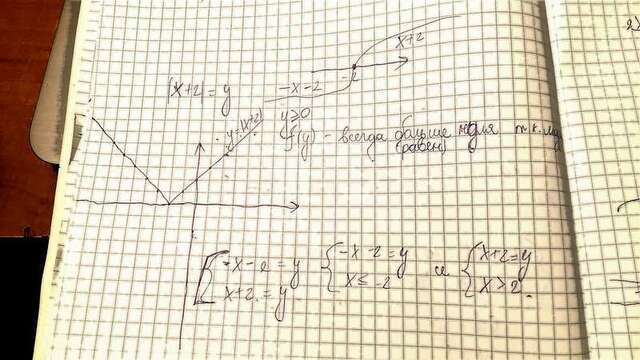 x+2
|x+2| = y
-x-2
-2
y=|x+2|
y≥0
f(y) - всегда больше нуля т.к.
(равен)
-x-2 = y
x+2 = y
-x-2 = y
x ≤ -2
и
x+2 = y
x > 2